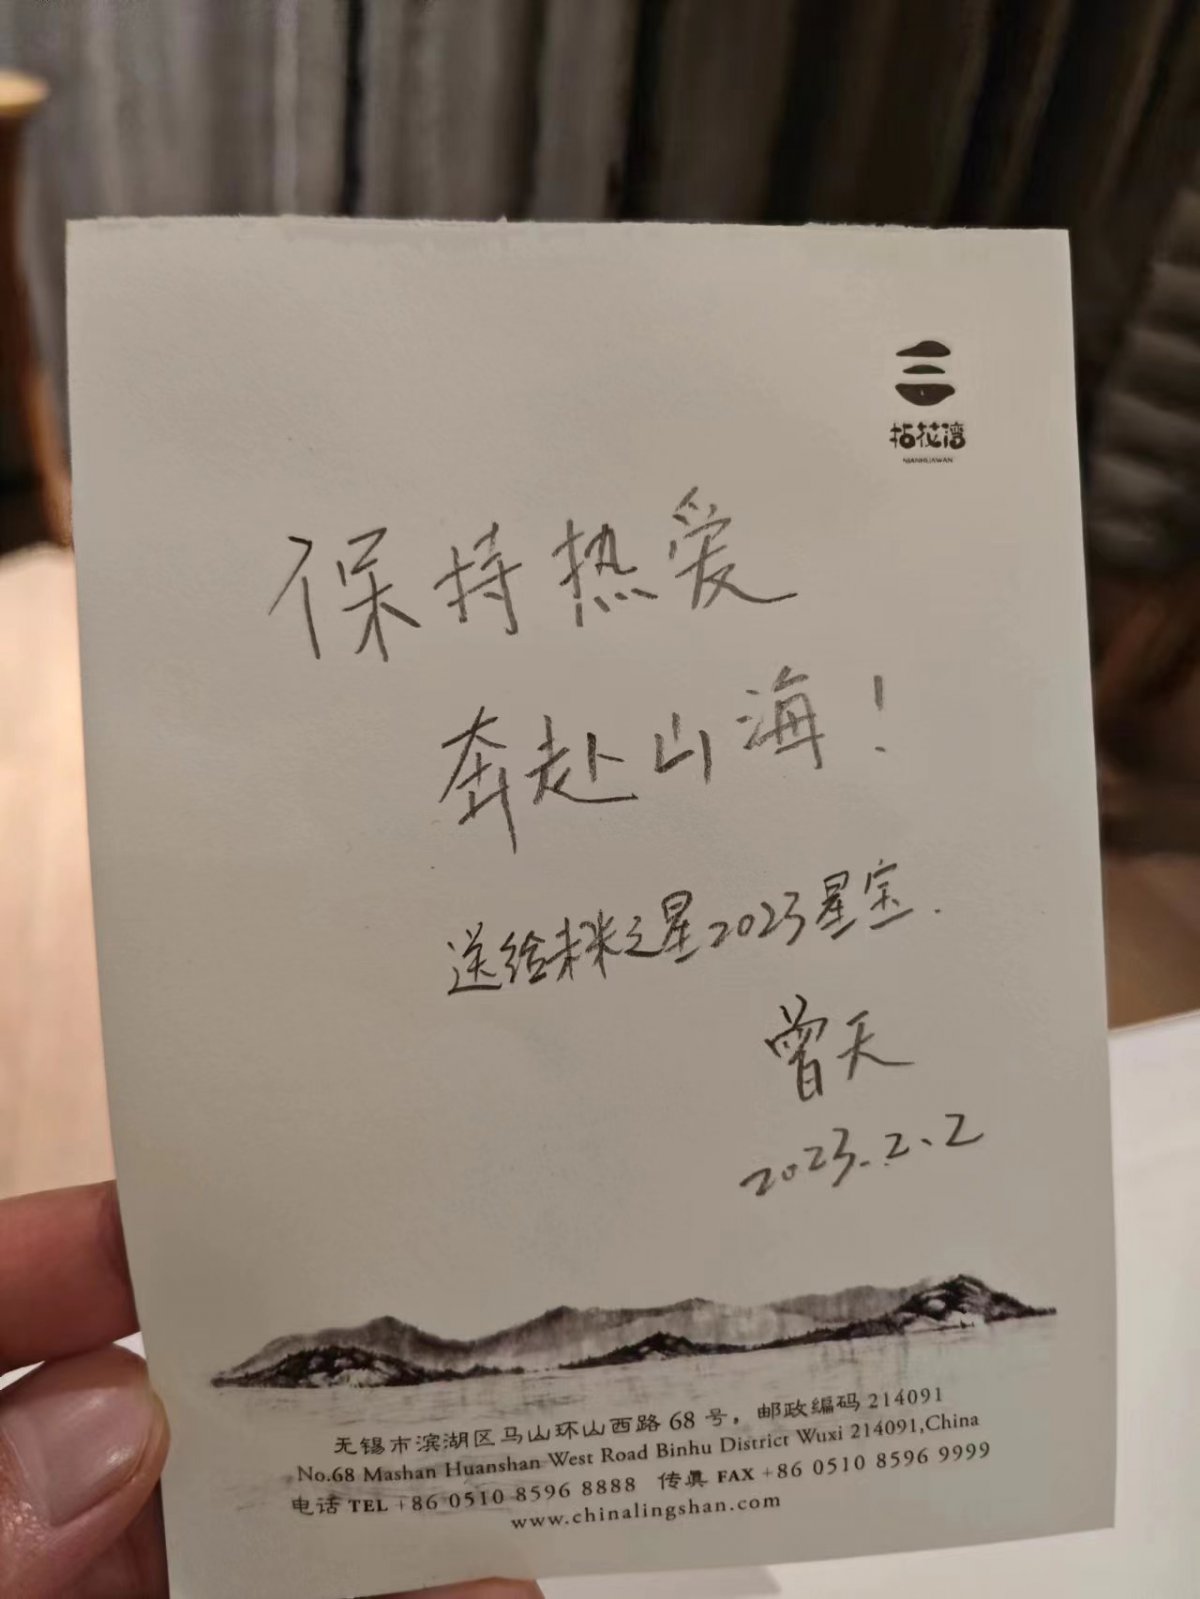 拈花湾
NIANHUAWAN
保持热爱
奔赴山海！
送给未来之星2023星宝.
曾天
2023.2.2
无锡市滨湖区马山环山西路 68 号，邮政编码 214091
No.68 Mashan Huanshan West Road Binhu District Wuxi 214091,China
电话 TEL +86 0510 8596 8888 传真 FAX +86 0510 8596 9999
www.chinalingshan.com